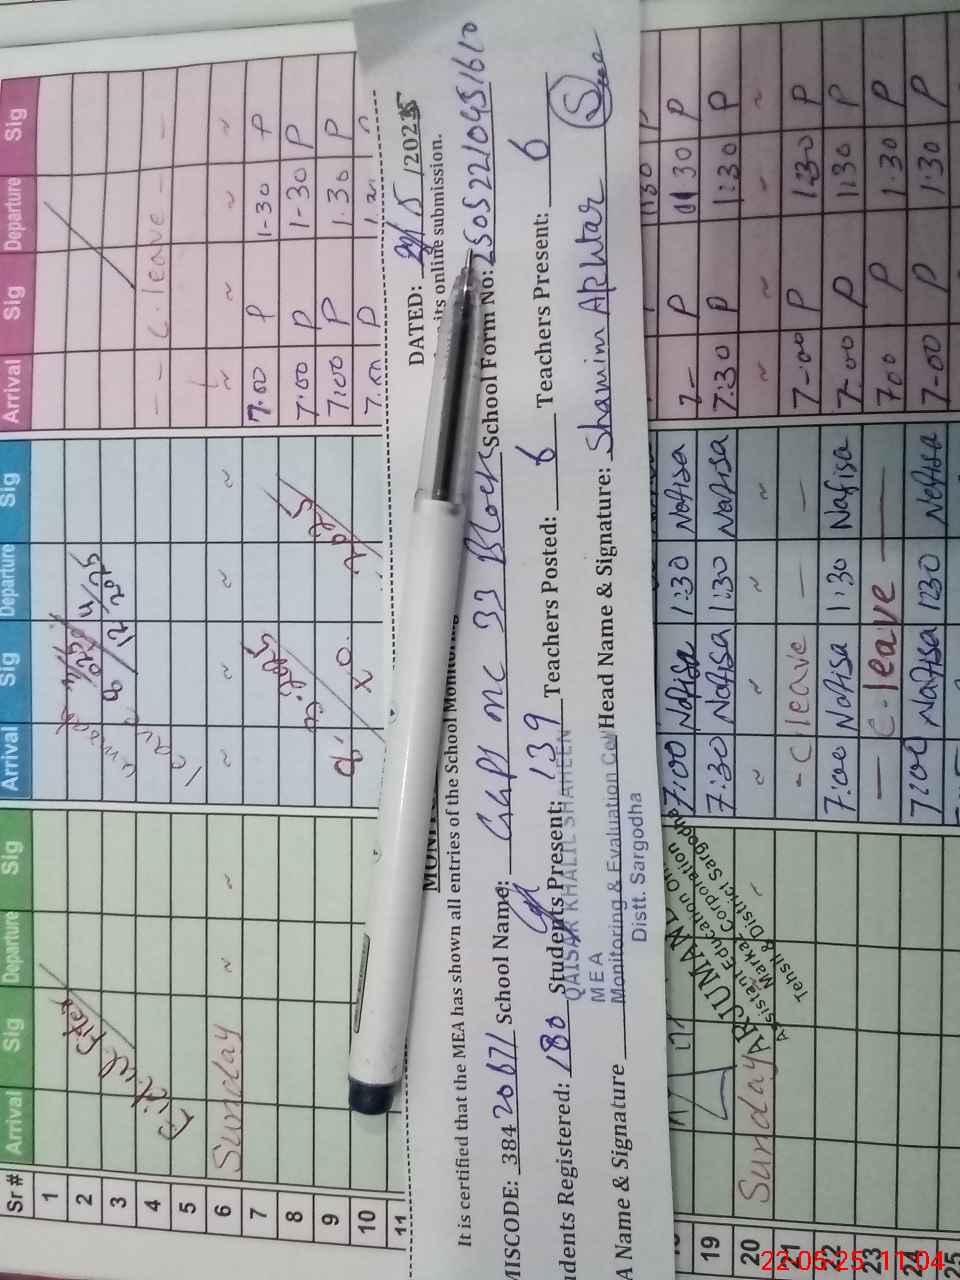 Sr # Arrival Sig Departure Sig Arrival Sig Departure Sig Arrival Sig Departure Sig
1
2
3
4 C. leave
5
6 Sunday ~ ~ ~ ~ ~ ~ ~ ~ ~ ~
7 7.00 P 1-30 P
8 7:00 P 1-30 P
9 7:00 P 1.30 P
10 P
11
DATED: /5 /2025
It is certified that the MEA has shown all entries of the School Monitoring its online submission.
MISCODE: 38420671 School Name: GGPS MC 33 Block School Form No: 25052210451610
dents Registered: 180 Students Present: 139 Teachers Posted: 6 Teachers Present: 6
QAISAR KHALIL SHAHEEN
MEA
A Name & Signature Head Name & Signature: Shamim Akhtar
Monitoring & Evaluation
Distt. Sargodha
7:00 Nafisa 1:30 Nafisa P 30 P
19 7:30 Nafisa 1:30 Nafisa 7:30 P 1:30 P
ARJUMAN
Assistant Education
Markaz Corporation
Tehsil & District Sargodha
20 Sunday ~ ~ ~ ~ ~ ~ ~ ~
21 - C leave — — 7-00 P 1:30 P
22 7:00 Nafisa 1:30 Nafisa 7-00 P 1:30 P
23 — C-leave — 7.00 P 1.30 P
24 7:00 Nafisa 1:30 Nafisa 7-00 P 1:30 P
25
22-05-25 11:04